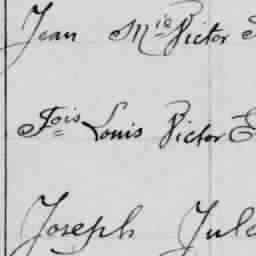 Jean Mie Victor
Fois Louis Victor E
Joseph Jule